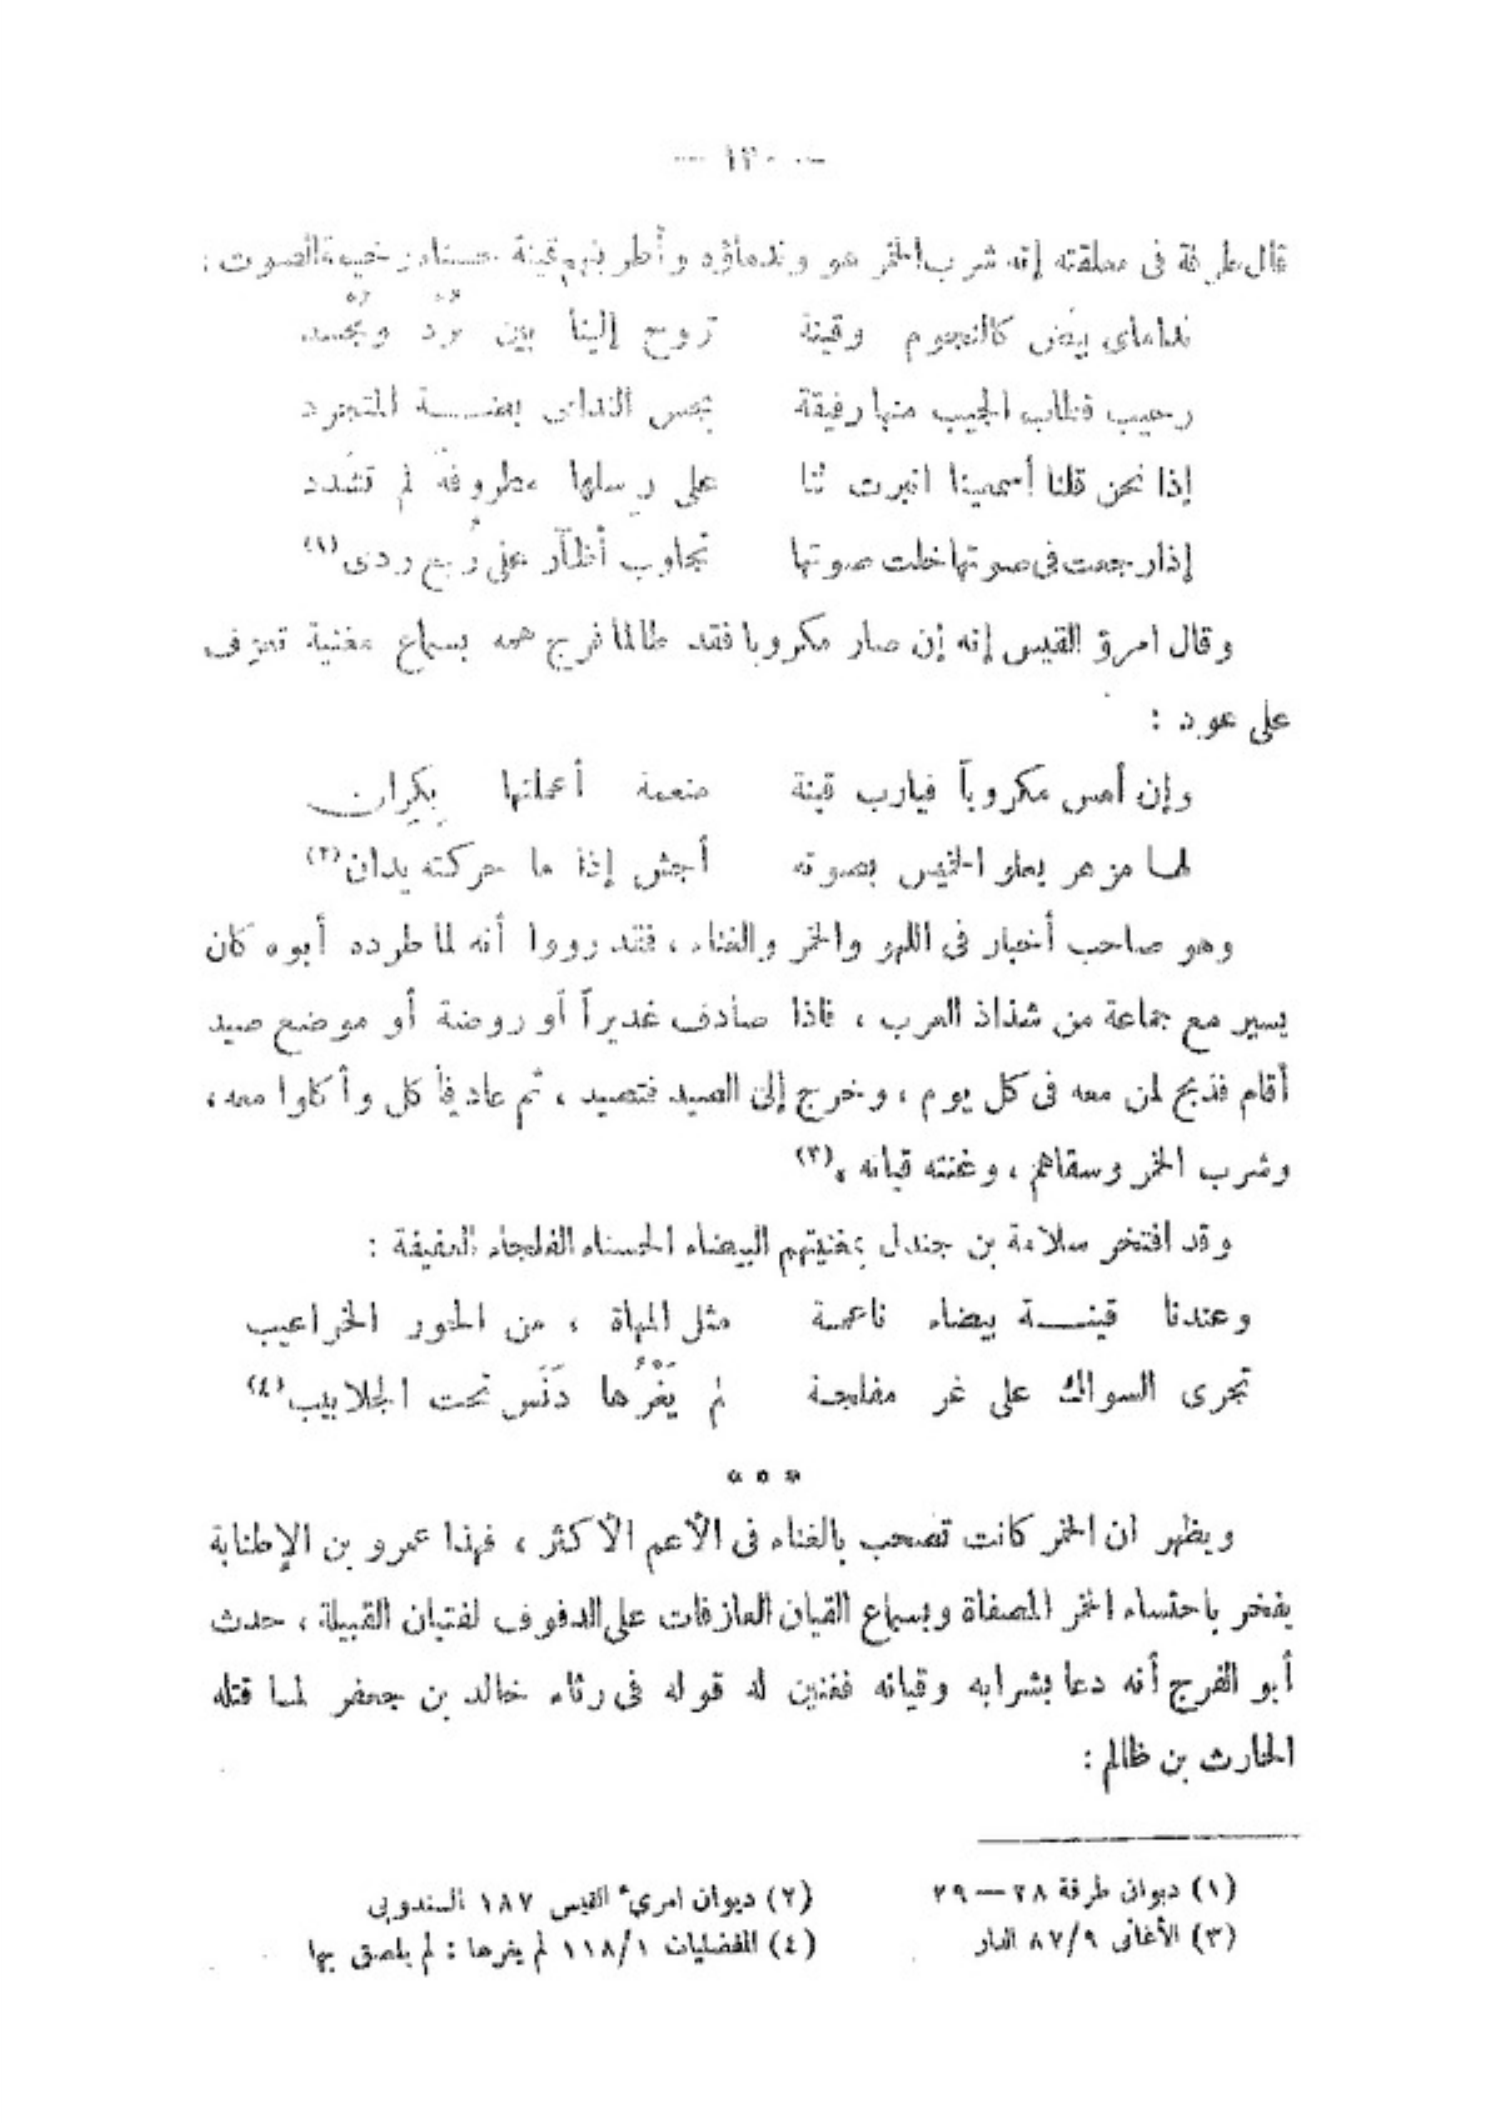 — ١٣٠ —
قال طرفة فى معلقته إنه شرب الخمر هو وندماؤه وأطربتهم قينة حسناء رخيمة الصوت :
نداماى بيض كالنجوم وقينة تروح إلينا بين بُرْد ومُجْسد
رحيب قطاب الجيب منها رفيقة بجس الندامى بضـــة المتجرد
إذا نحن قلنا أسمعينا انبرت لنا على رِسلها مطروفةً لم تشدد
إذا رجعت فى صوتها خلت صوتها تجاوب أظآر على رُبع ردى (١)
وقال امرؤ القيس إنه إن صار مكروبا فقد طالما فرج همه بسماع مغنية تعزف
على عود :
وإن أمس مكروباً فيارب قينة منعمة أعملتها بِكِران
لها مزهر يعلو الخميس بصوته أجش إذا ما حركته يدان (٢)
وهو صاحب أخبار فى اللهو والخمر والغناء ، فقد رووا أنه لما طرده أبوه كان
يسير مع جماعة من شذاذ العرب ، فاذا صادف غديراً أو روضة أو موضع صيد
أقام فذبح لمن معه فى كل يوم ، وخرج إلى الصيد فتصيد ، ثم عاد فأكل وأكلوا معه ،
وشرب الخمر وسقاهم ، وغنته قيانه . (٣)
وقد افتخر سلامة بن جندل بمغنيتهم البيضاء الحسناء الفلجاء العفيفة :
وعندنا قينـــة بيضاء ناعمـة مثل المهاة ، من الحور الخراعيب
تجرى السواك على غر مفلجـة لم يَغْرُها دَنَس تحت الجلابيب (٤)
* * *
ويظهر ان الخمر كانت تصحب بالغناء فى الأعم الأكثر ، فهذا عمرو بن الإطنابة
يفخر باحتساء الخمر المصفاة وبسماع القيان العازفات على الدفوف لفتيان القبيلة ، حدث
أبو الفرج أنه دعا بشرابه وقيانه فغنين له قوله فى رثاء خالد بن جعفر لمـا قتله
الحارث بن ظالم :
(١) ديوان طرفة ٢٨ — ٢٩ (٢) ديوان امرىء القيس ١٨٧ السندوبى
(٣) الأغانى ٨٧/٩ الدار (٤) المفضليات ١١٨/١ لم يغرها : لم يلصق بها